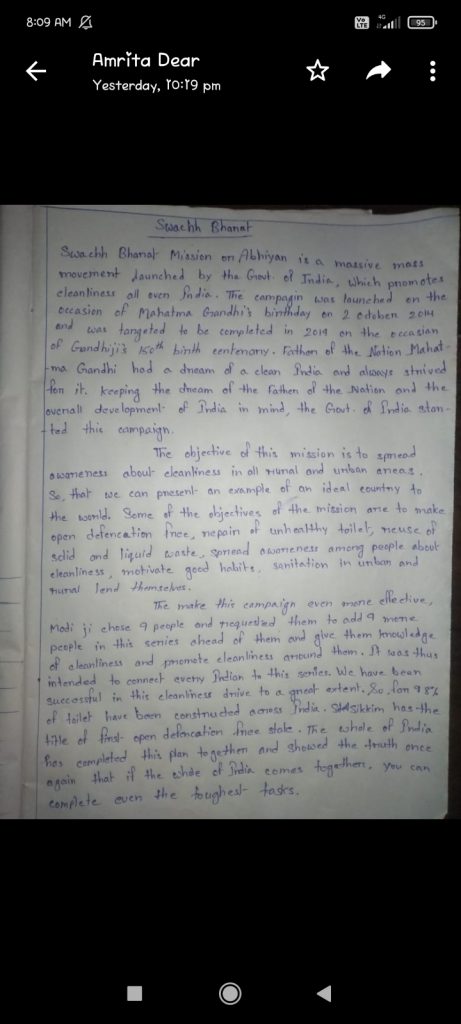 8:09 AM
Vo LTE 4G 95
Amrita Dear
Yesterday, 10:19 pm
Swachh Bharat
Swachh Bharat Mission or Abhiyan is a massive mass
movement launched by the Govt. of India, which promotes
cleanliness all over India. The campagin was launched on the
occasion of Mahatma Grandhi's birthday on 2 october 2014
and was targeted to be completed in 2019 on the occasian
of Gandhiji's 150th birth centenary. Father of the Nation Mahat-
-ma Gandhi had a dream of a clean India and always strived
for it. Keeping the dream of the Father of the Nation and the
overall development of India in mind, the Govt. of India star-
-ted this campaign.
The objective of this mission is to spread
awareness about cleanliness in all rural and urban areas.
So, that we can present an example of an ideal country to
the world. Some of the objectives of the mission are to make
open defencation free, repair of unhealthy toilet, reuse of
solid and liquid waste, spread awareness among people about
cleanliness, motivate good habits, sanitation in urban and
rural lend themselves.
The make this campaign even more effective,
Modi ji chose 9 people and requested them to add 9 more
people in this series ahead of them and give them knowledge
of cleanliness and promote cleanliness around them. It was thus
intended to connect every Indian to this series. We have been
successful in this cleanliness drive to a great extent. So, far 98%
of toilet have been constructed across India. Sikkim has the
title of first open defencation free state. The whole of India
has completed this plan together and showed the truth once
again that if the whole of India comes together, you can
complete even the toughest tasks.